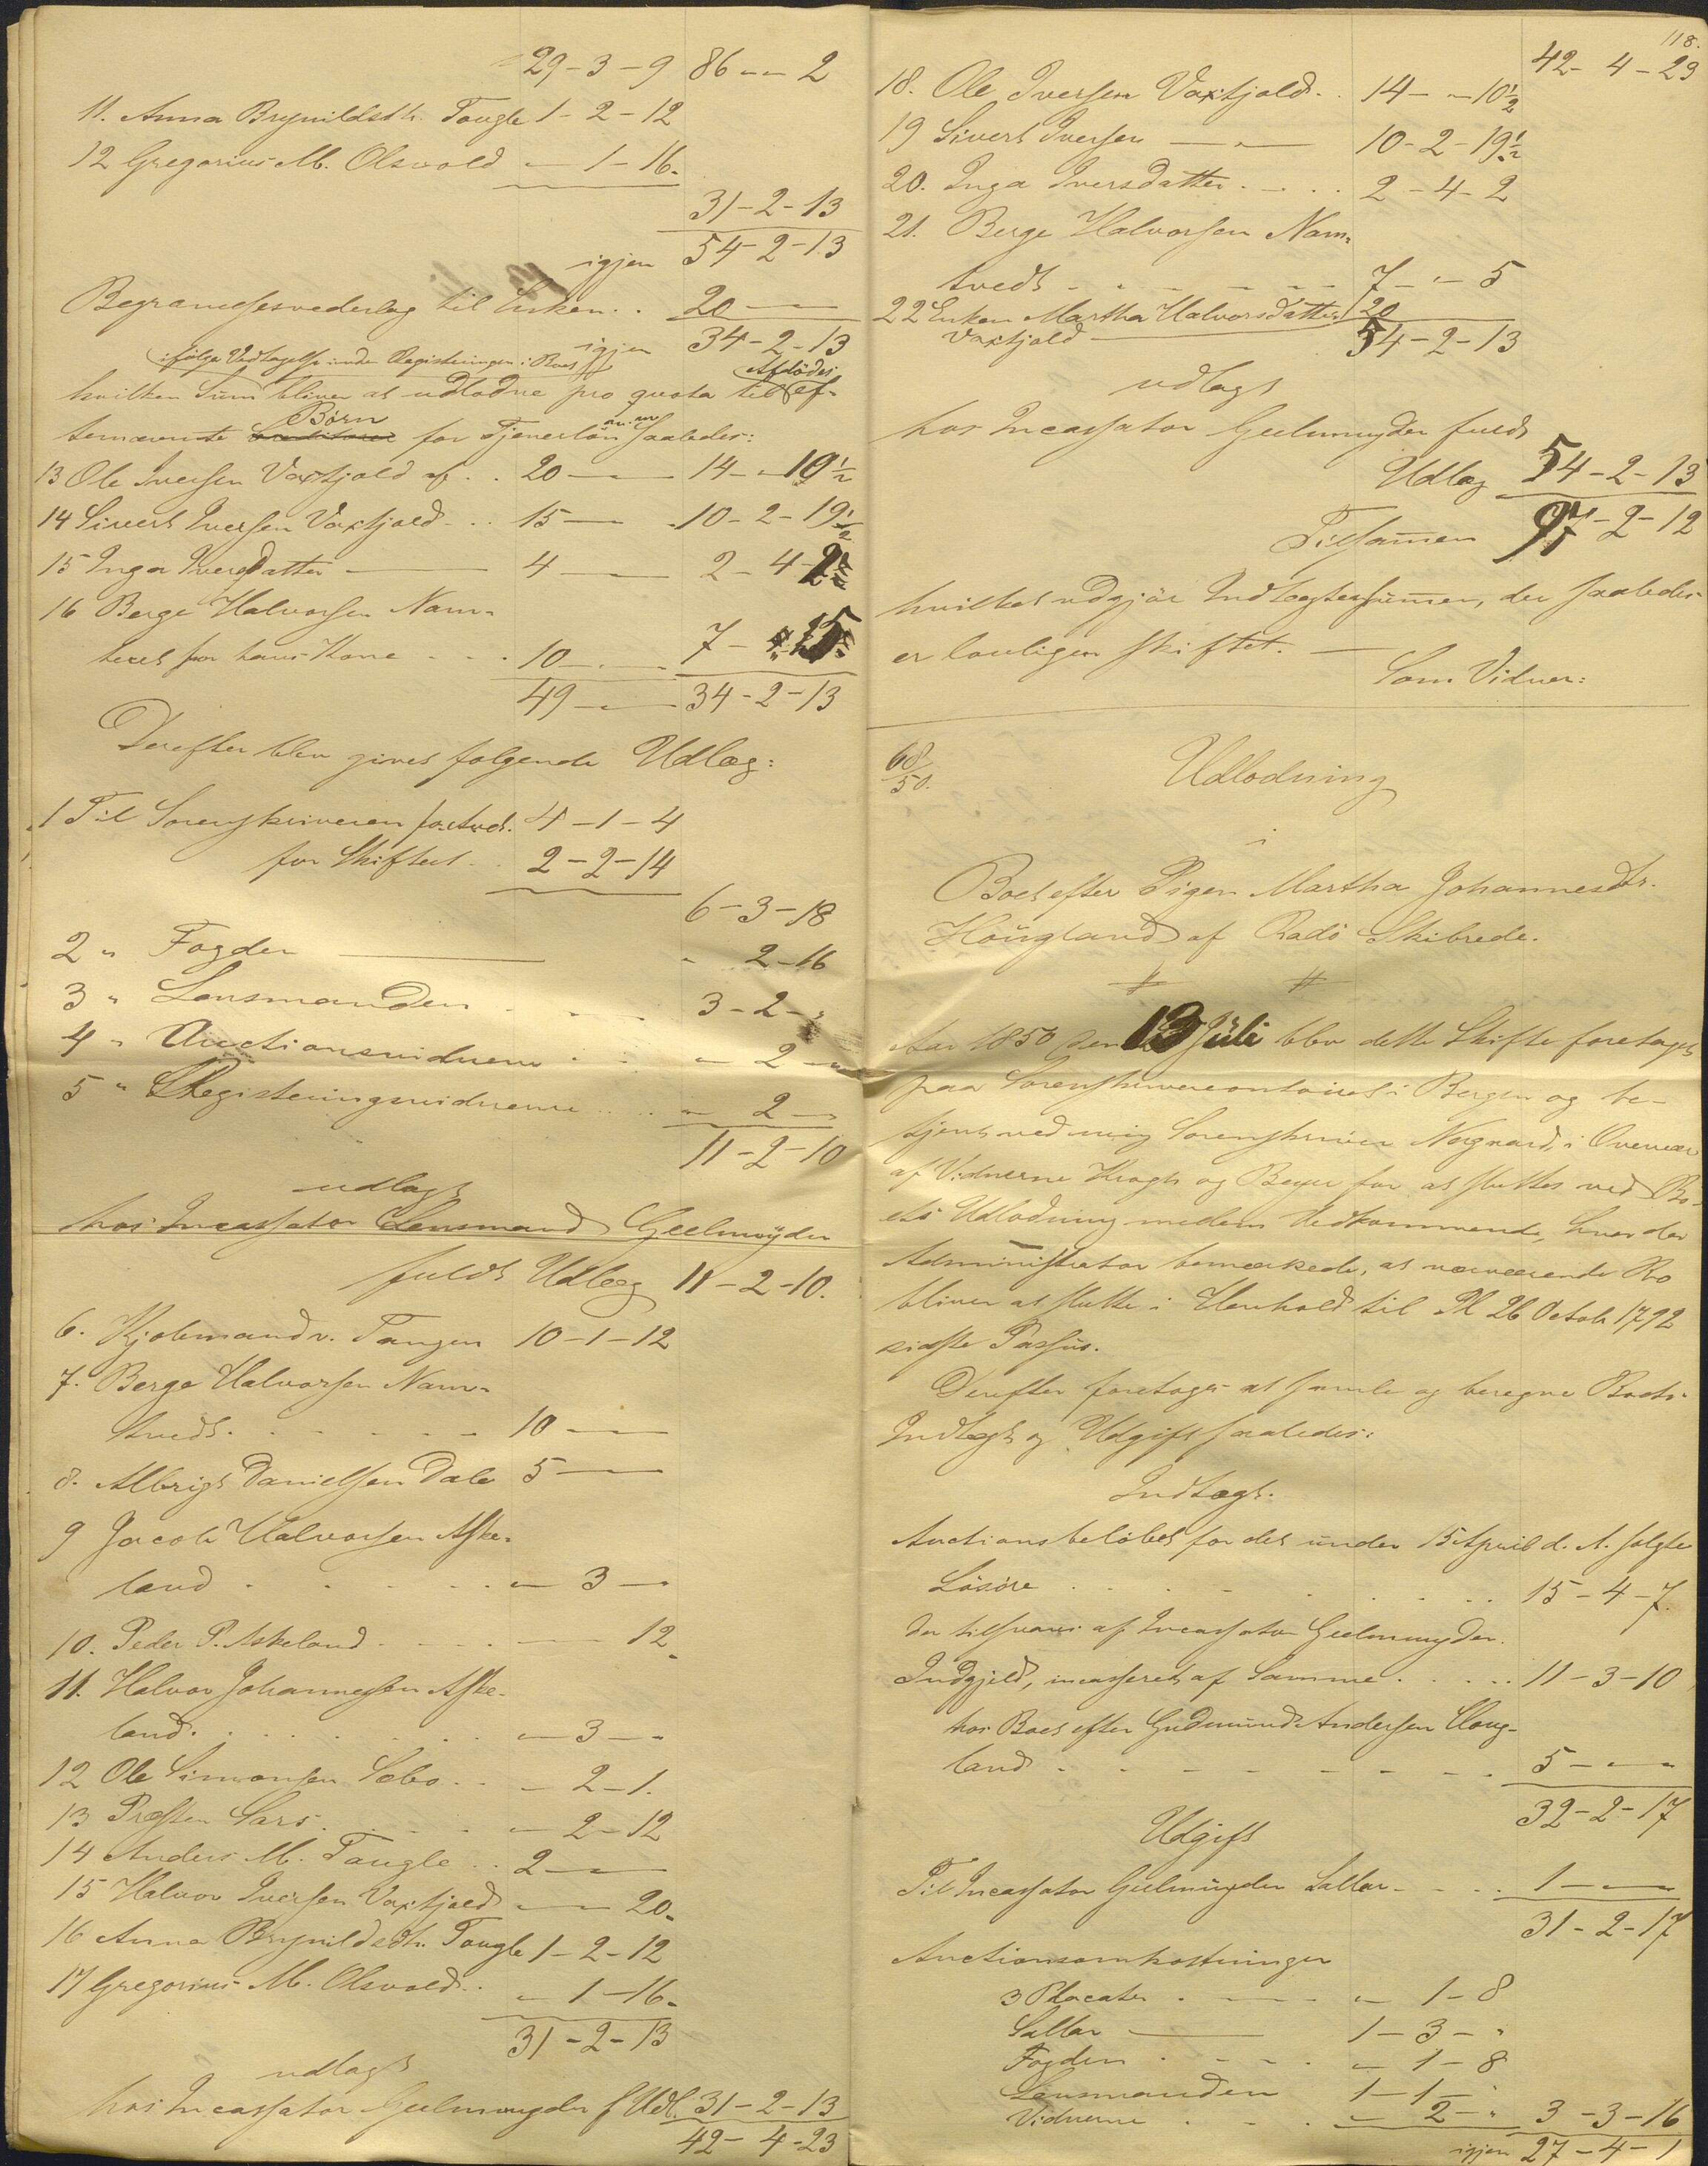 29-3-9 86 - - 2
11. Anna Brynildsdtr. Tougle 1-2-12
12 Gregorius M. Olsvold - 1-16.
31-2-13
igjen 54-2-13
Begravelsesvederlag til Enken. . 20 -
igjen 34-2-13
ifølge Vedtagelse under Registeringen i Boet
hvilken Sum bliver at udlodne pro quota til Afdødes ef-
ternævnte Creditorer Børn for Tjenerløn saaledes:
13 Ole Iversen Vaxtjold af . . 20 - 14 - - 19½
14 Sivert Iversen Vaxtjold . . 15 - 10-2-19½
15 Inga Iversdatter - 4 - 2-4-2
16 Berge Halvorsen Nam-
tvet for hans Kone - - . 10 - 7 - - 5
49 - 34-2-13
Derefter blev givet følgende Udlæg:
1 Til Sorenskriveren for Auct. 4-1-4
for Skiftet . . 2-2-14
6-3-18
2 " Fogden - " 2-16
3 " Lensmanden . . . 3-2-"
4 " Auctionsvidnerne . . . - 2 -
5 " Registeringsvidnerne . . . - 2 -
11-2-10
udlagt
hos Incassator Lensmand Geelmüyden
fuldt Udlæg 11-2-10.
6. Kjøbmand v. Tangen 10-1-12
7. Berge Halvorsen Nam-
tvedt. - - - - - 10 -
8. Albrigt Danielsen Dale 5 -
9 Jacob Halvorsen Aske-
land . . . . . - 3 -
10. Peder P. Askeland. - - - - 12.
11. Halvor Johannesen Aske-
land. . . . . . - 3 - -
12 Ole Simonsen Sæbo . . - 2-1.
13 Præsten Sars. . . . - 2-12
14 Anders M. Tougle . . 2 -
15 Halvor Iversen Vaxtjold - - 20.
16 Anna Brynildsdtr. Tougle 1-2-12
17 Gregorius M. Olsvold . . - 1-16.
31-2-13
udlagt
hos Incassator Geelmuyden f Udl. 31-2-13
42-4-23
118.
42-4-23
18. Ole Iversen Vaxtjold. . 14 - - 19½
19 Sivert Iversen - " - 10-2-19½
20. Inga Iversdatter. - . . 2-4-2
21. Berge Halvorsen Nam-
tvedt - - - - - 7 - " - 5
22 Enken Martha Halvorsdatter 20
Vaxtjold - 54-2-13
udlagt
hos Incassator Geelmuyden fuldt
Udlæg 54-2-13
Tilsammen 97-2-12
hvilket udgjør Indtægtessummen, der saaledes
er lovligen skiftet. -
Som Vidner:
68/50.
Udlodning
i
Boet efter Pigen Martha Johannesdtr.
Hougland af Radø Skibrede.
Aar 1850 den 13 Juli blev dette Skifte foretaget
paa Sorenskrivercontoiret i Bergen og be-
tjent ved mig Sorenskriver Nørgaard, i Overvær
af Vidnerne Krogh og Beyer for at sluttes ved Bo-
ets Udlodning mellem Vedkommende, hvor da
Administrator bemærkede, at nærværende Bo
bliver at slutte i Henhold til Pl 26 Octob 1792
sidste Passus.
Derefter foretoges at samle og beregne Boets
Indtægt og Udgift saaledes:
Indtægt.
Auctionsbeløbet for det under 15 April d. A. solgte
Løsøre . . . . . . 15-4-7.
der tilsvares af Incassator Geelmuyden.
Indgjeld, incasseret af Samme . . . . 11-3-10
hos Boet efter Gudmund Andersen Houg-
land . - - - - - - 5 - " -
32-2-17
Udgift
Til Incassator Geelmüyden Sallar- - - - 1 - -
31-2-17
Auctionsomkostninger
3 Placater . - - - 1-8
Sallar - 1-3-"
Fogden . - - . - 1-8
Lensmanden 1-1-"
Vidnerne . - . - 2-" 3-3-16
igjen 27-4-1